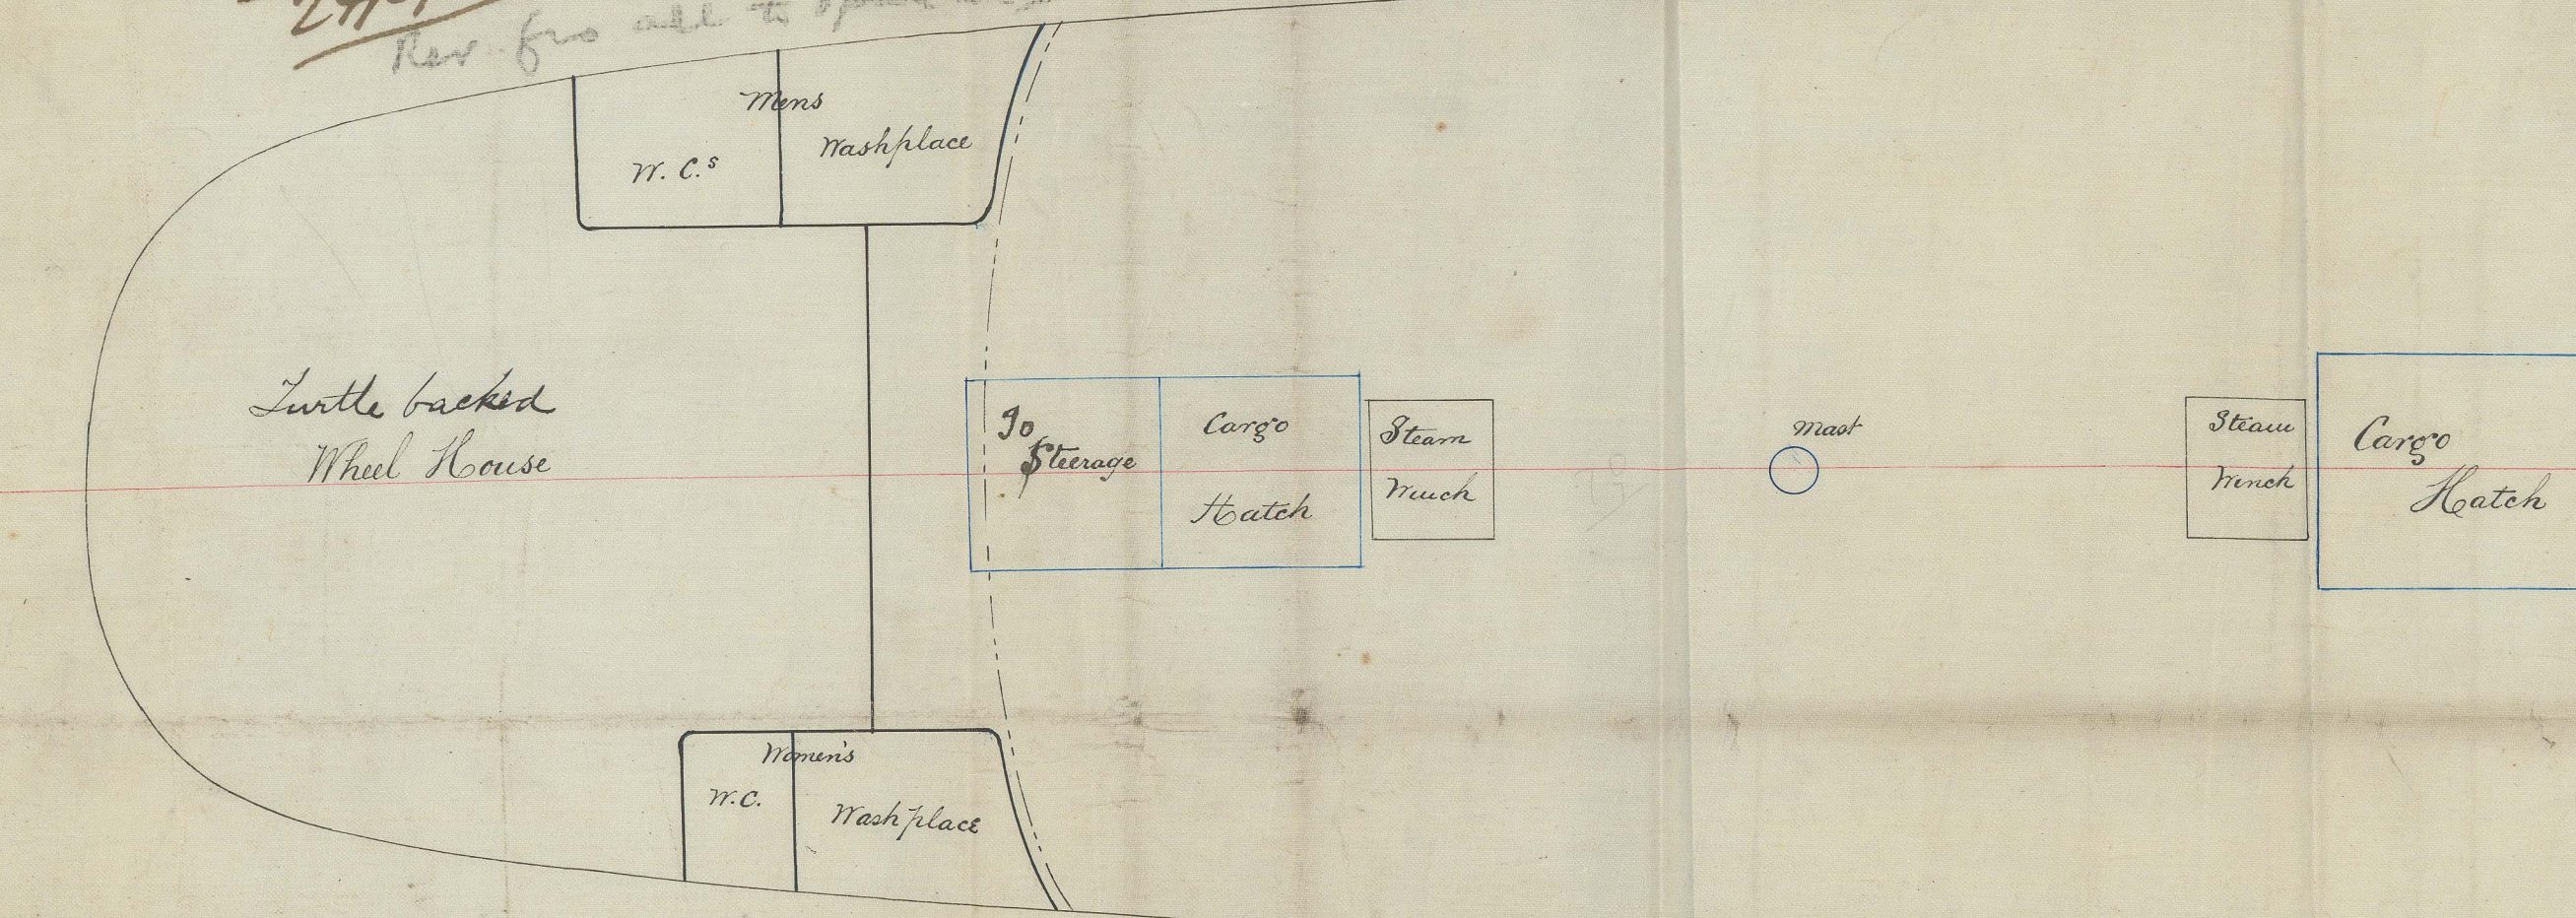 Mens
W. C.s
Washplace
Turtle backed
Wheel House
To
Steerage
Cargo
Hatch
Steam
Winch
Mast
Steam
Winch
Cargo
Hatch
Women's
W.C.
Washplace